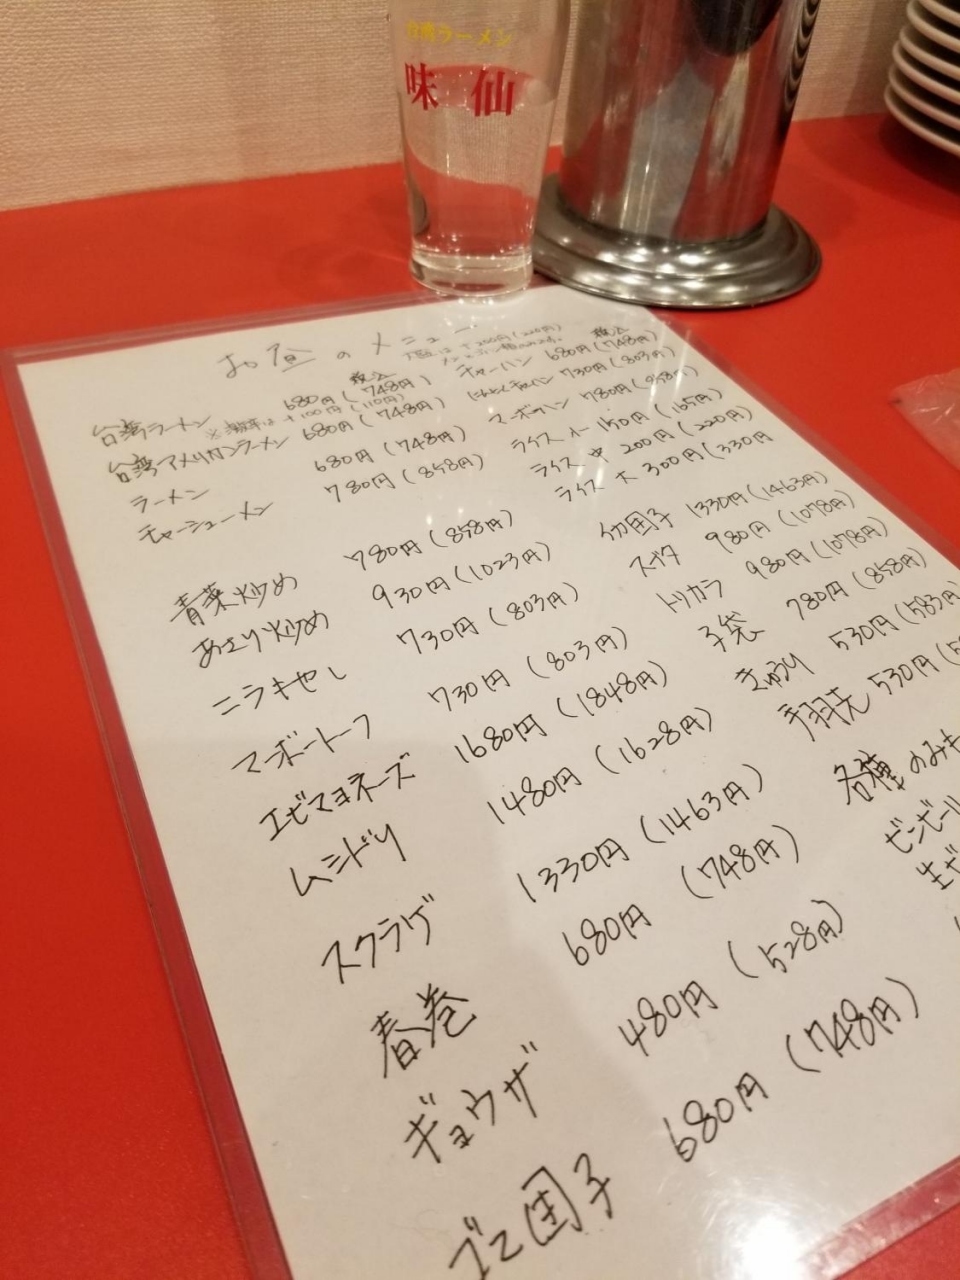 台湾ラーメン
味仙
お昼のメニュー
大盛は+200円(220円)
税込
税込
台湾ラーメン 680円(748円)
※ +100円(110円)
台湾アメリカンラーメン 680円(748円)
ラーメン 680円(748円)
チャーシューメン 780円(858円)
青菜炒め 780円(858円)
あさり炒め 930円(1023円)
ニラモヤシ 730円(803円)
マーボートーフ 730円(803円)
エビマヨネーズ 1680円(1848円)
ムシドリ 1480円(1628円)
スクラゲ 1330円(1463円)
春巻 680円(748円)
ギョウザ 480円(528円)
ゴマ団子 680円(748円)
チャーハン 680円(748円)
にんにくチャーハン 730円(803円)
マーボーハン 780円(858円)
ライス 小 150円(165円)
ライス 中 200円(220円)
ライス 大 300円(330円
肉団子 1330円(1463円)
スブタ 980円(1078円)
トリカラ 980円(1078円)
子袋 780円(858円)
きゅうり 530円(583円
手羽先 530円(
各種のみも
ビンビール
生ビ